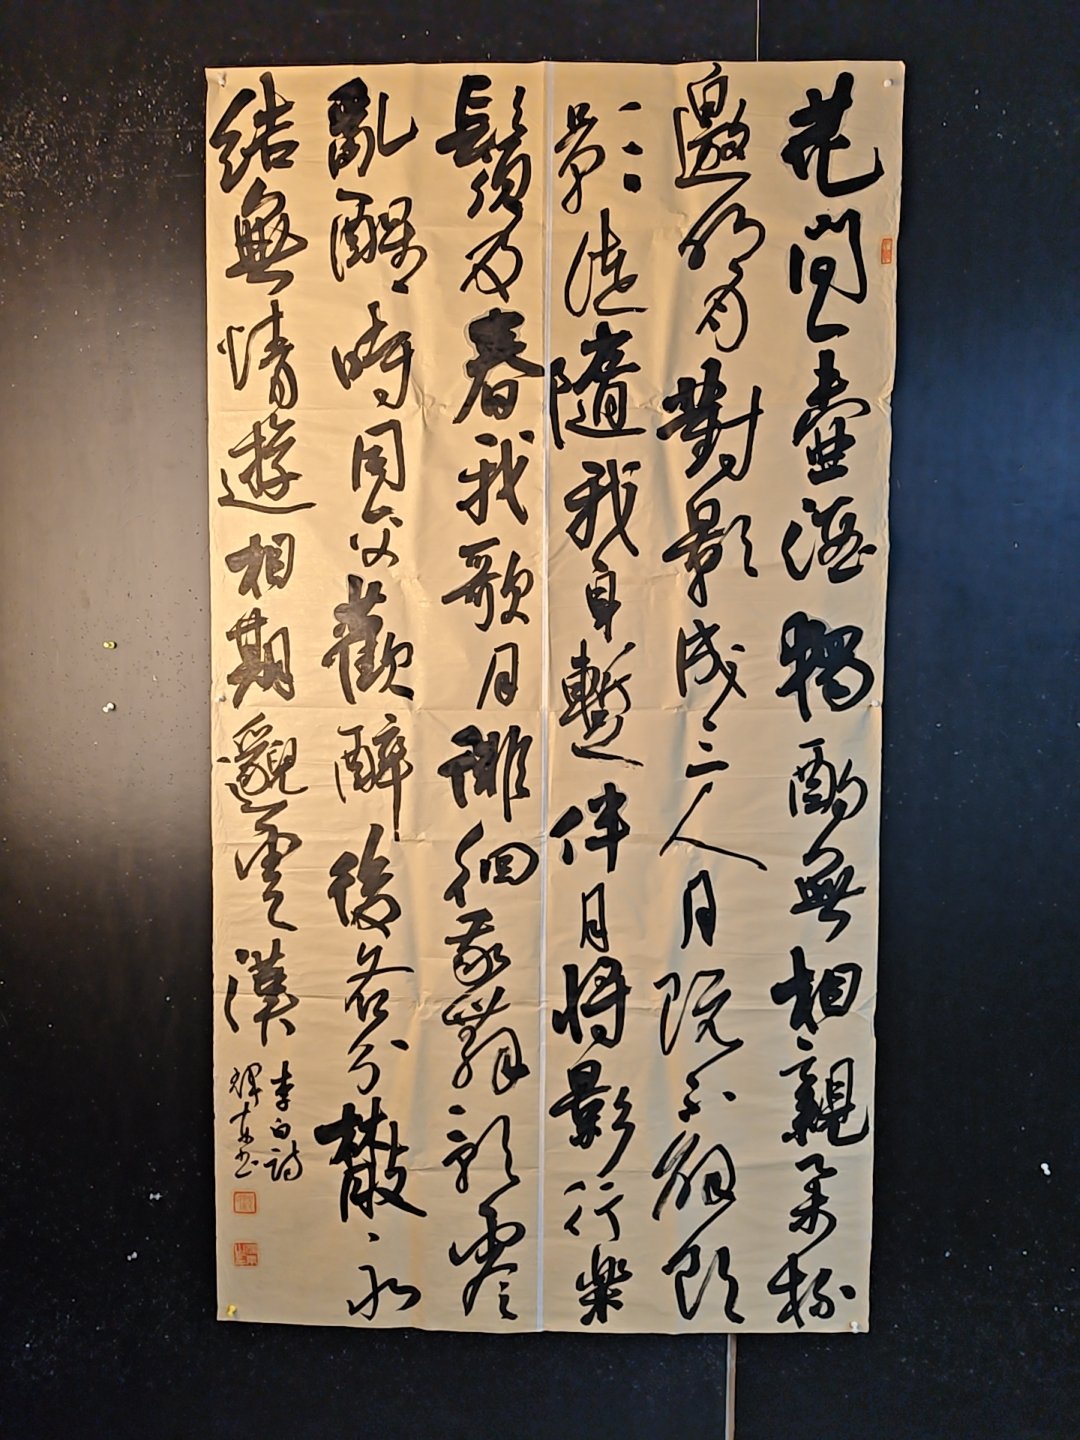 花間一壺酒獨酌無相親舉杯
邀明月對影成三人月既不解飲
影徒隨我身暫伴月將影行樂
鬚及春我歌月徘徊我舞影零
亂醒時同交歡醉後各分散永
結無情遊相期邈雲漢
李白詩
輝東書